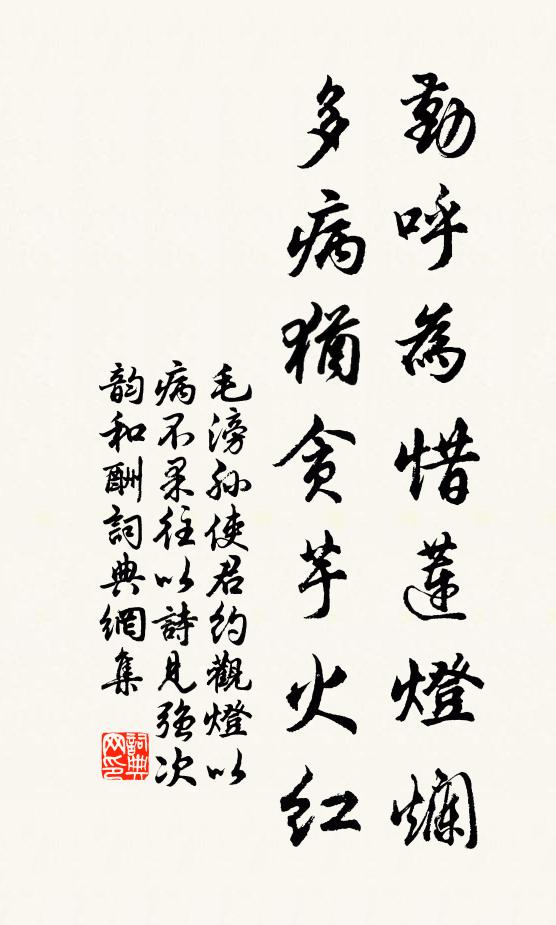 勤呼為惜蓮燈爛
多病猶貪芋火紅
毛滂孫使君約觀燈以
病不果往以詩見強次
韵和酬詞典網集
詞典網印